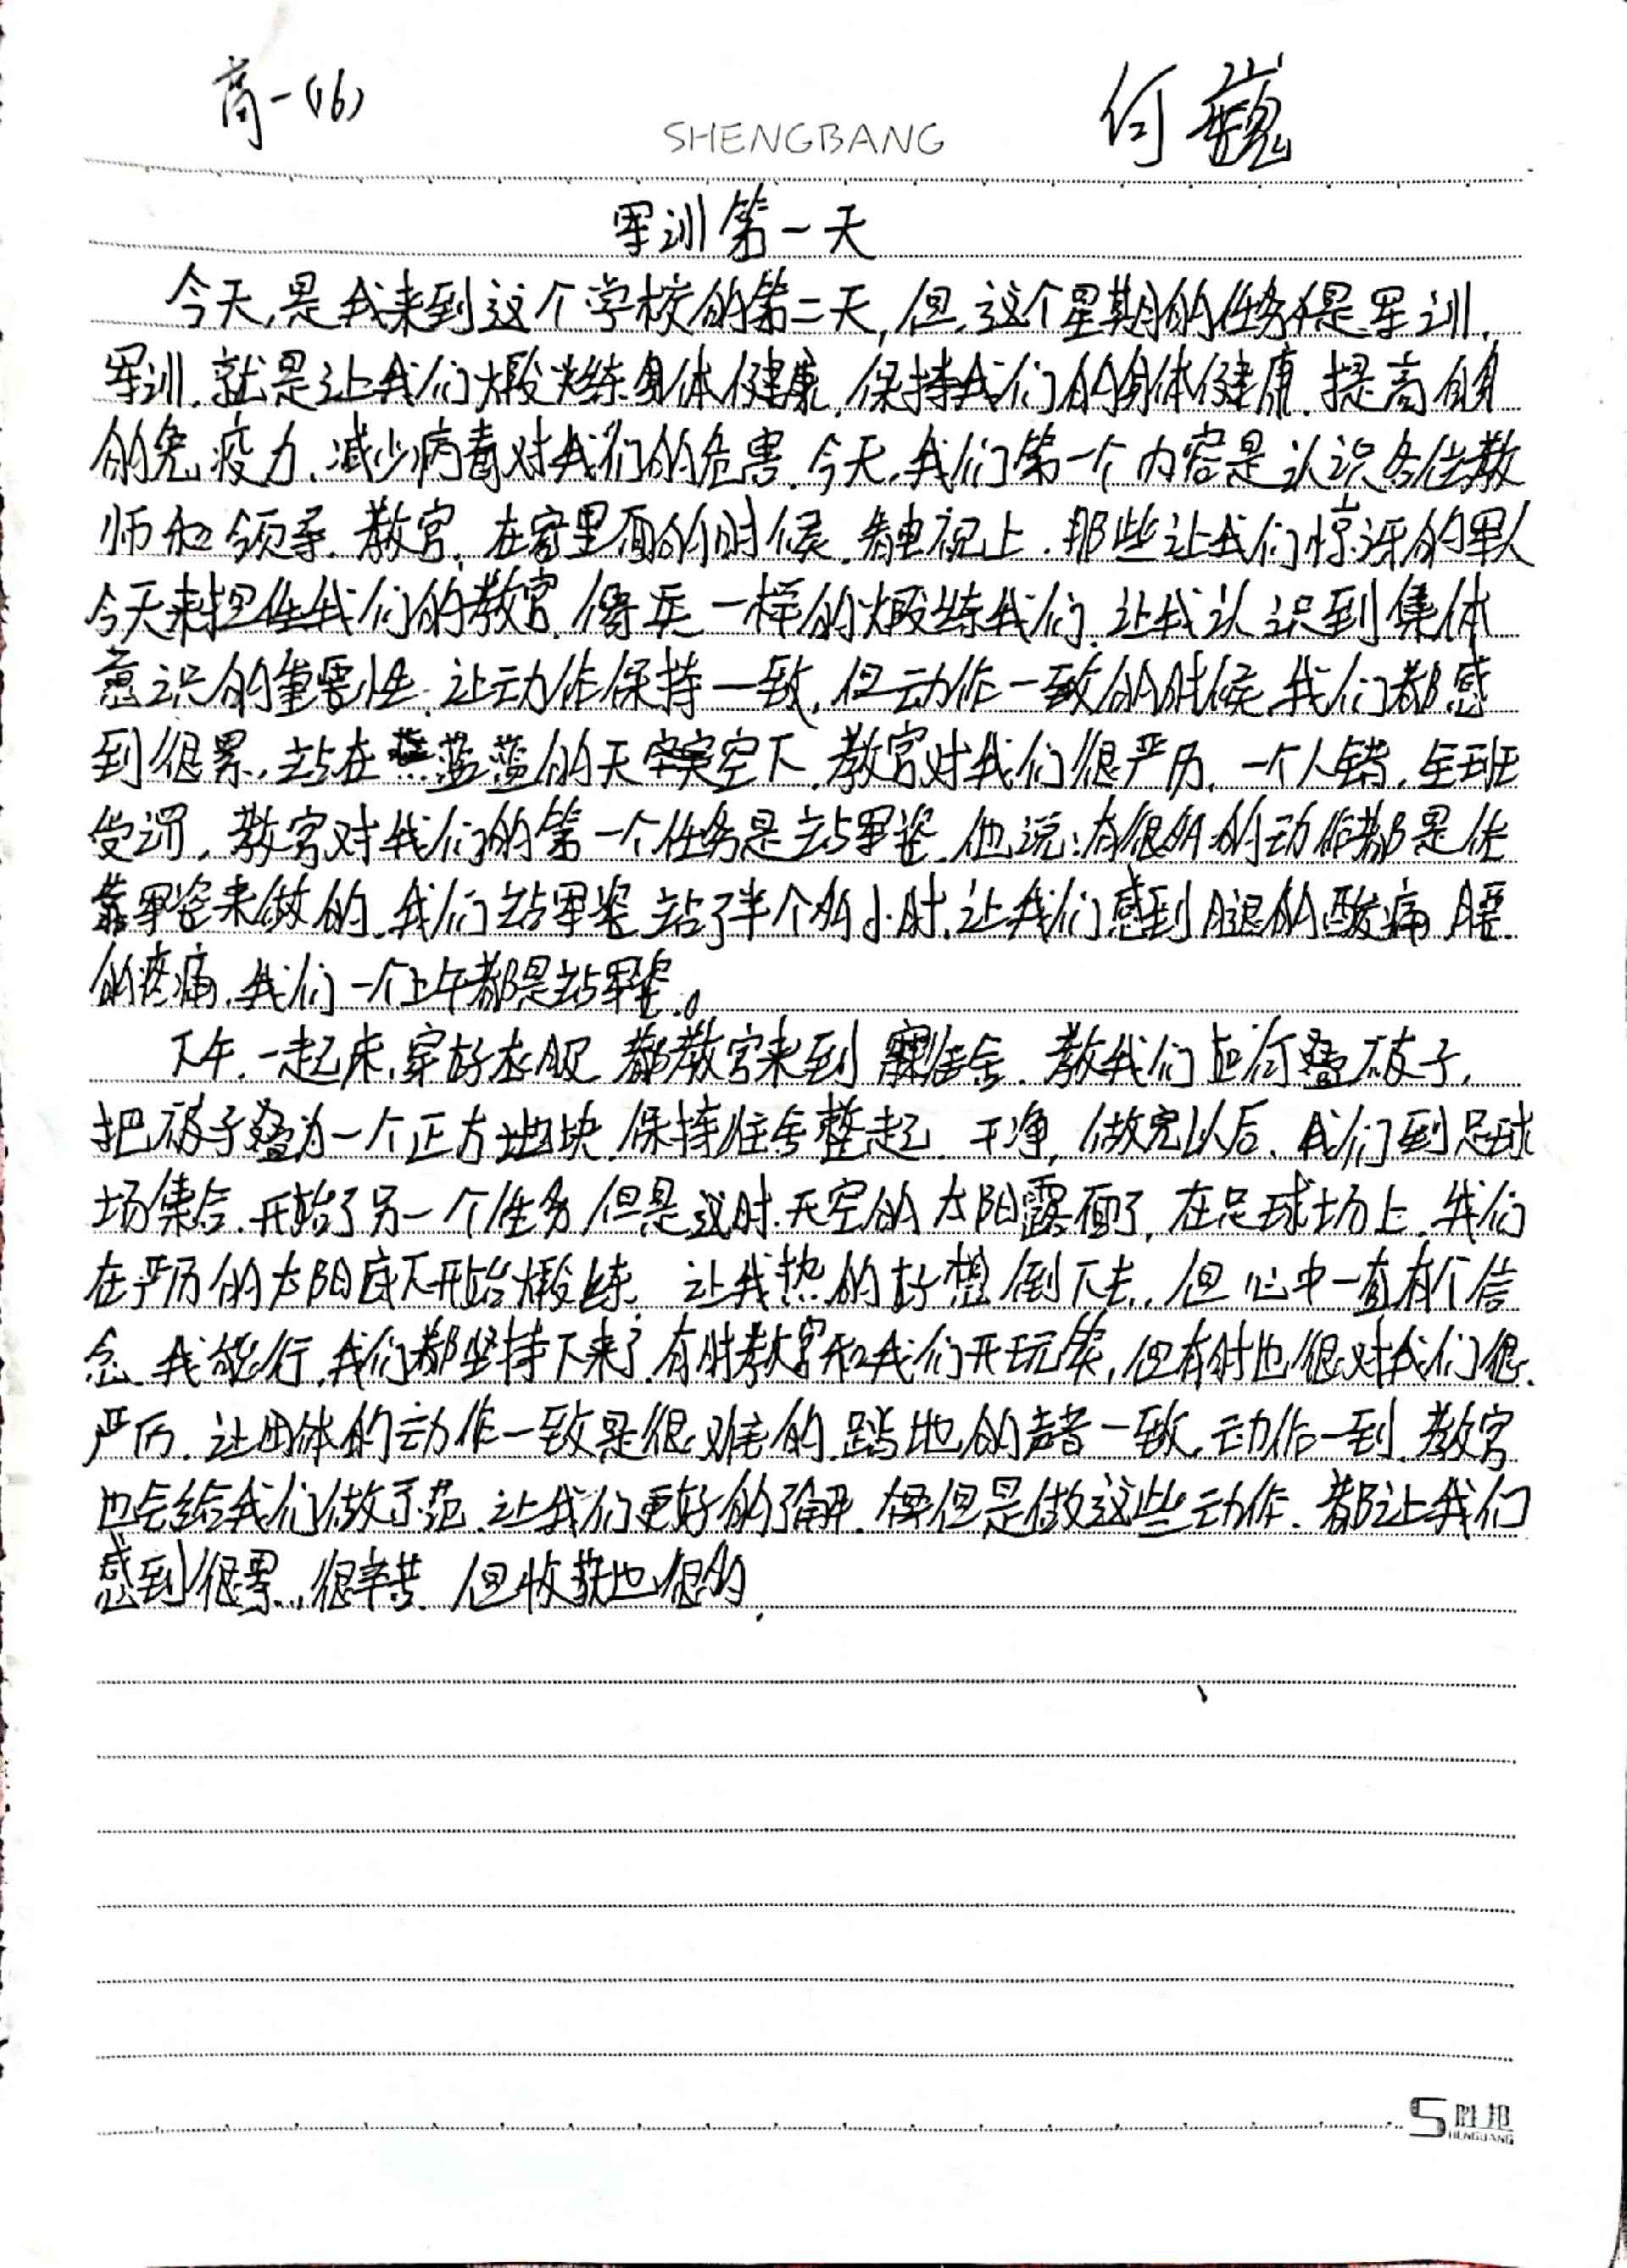 高一(16)
何巍
SHENGBANG
军训第一天
今天,是我来到这个学校的第二天,但,这个星期的任务是军训,
军训,就是让我们煅炼身体健康,保持我们的身体健康,提高自身
的免疫力,减少病毒对我们的危害,今天,我们第一个内容是认识各位教
师和领导,教官,在家里面的时候,看电视上,那些让我们惊讶的军人
今天来担任我们的教官,像兵一样的煅练我们,让我认识到集体
意识的重要性,让动作保持一致,但动作一致的时候,我们都感
到很累,站在蓝蓝的天空下,教官对我们很严历,一个人错,全班
受罚,教官对我们的第一个任务是站军姿,他说:有很多的动作都是依
靠军姿来做的,我们站军姿站了半个多小时,让我们感到腿的酸痛,腰
的疼痛,我们一个上午都是站军姿。
下午,一起床,穿好衣服,都教官来到宿舍,教我们如何叠被子,
把被子叠为一个正方地块,保持住舍整起,干净,做完以后,我们到足球
场集合,开始了另一个任务,但是这时,天空的太阳露面了,在足球场上,我们
在严历的太阳底下开始煅练,让我热的好想倒下去,但心中一直有个信
念,我能行,我们都坚持下来了,有时教官和我们开玩笑,但有时也很对我们很
严历,让团体的动作一致是很难的,踏地的声音一致,动作一到,教官
也会给我们做示范,让我们更好的了解,但是做这些动作,都让我们
感到很累,很辛苦,但收获也很多,
S胜邦
SHENGBANG